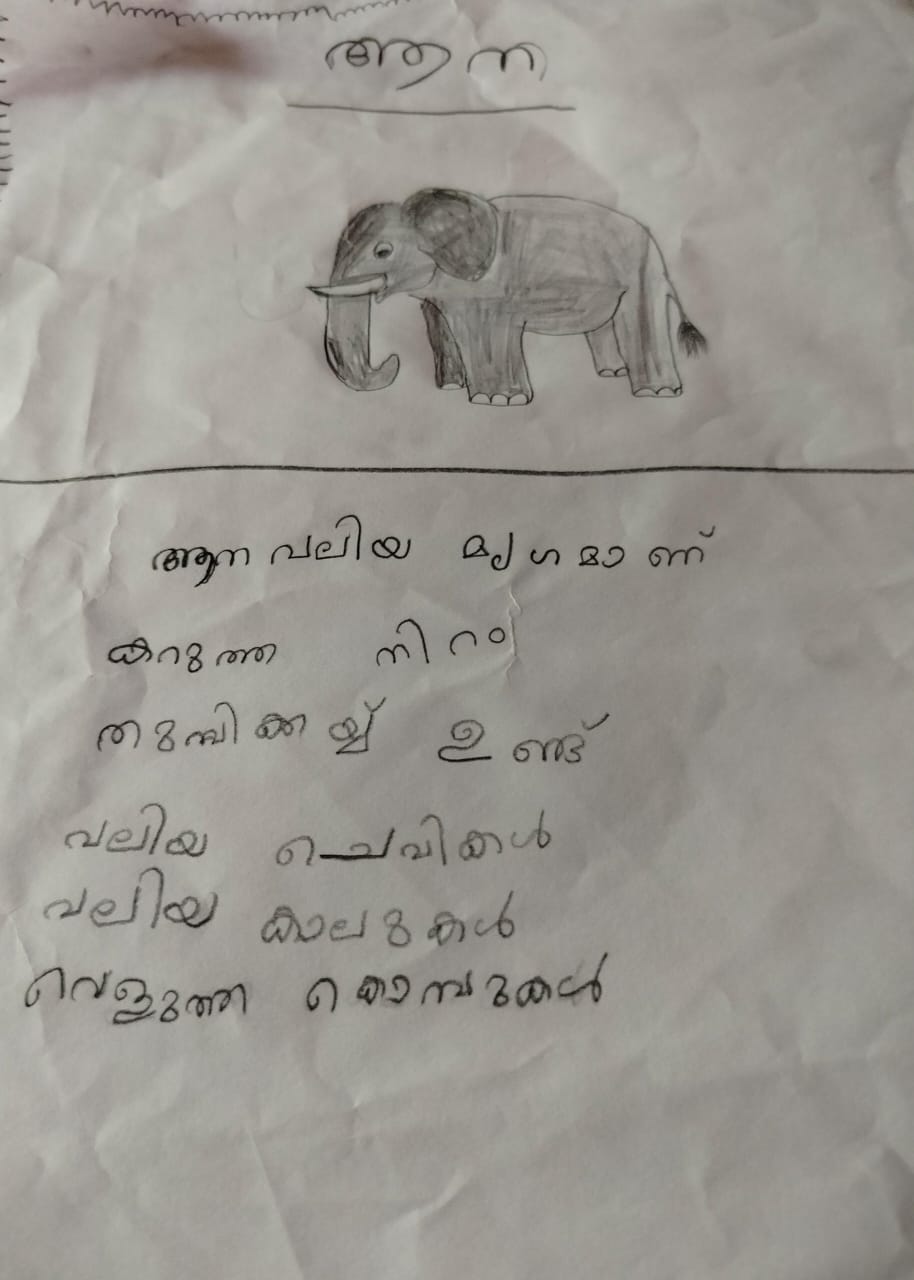 ആന
ആന വലിയ മൃഗമാണ്
കറുത്ത നിറം
തുമ്പിക്കയ്യ് ഉണ്ട്
വലിയ ചെവികൾ
വലിയ കാലുകൾ
വെളുത്ത കൊമ്പുകൾ